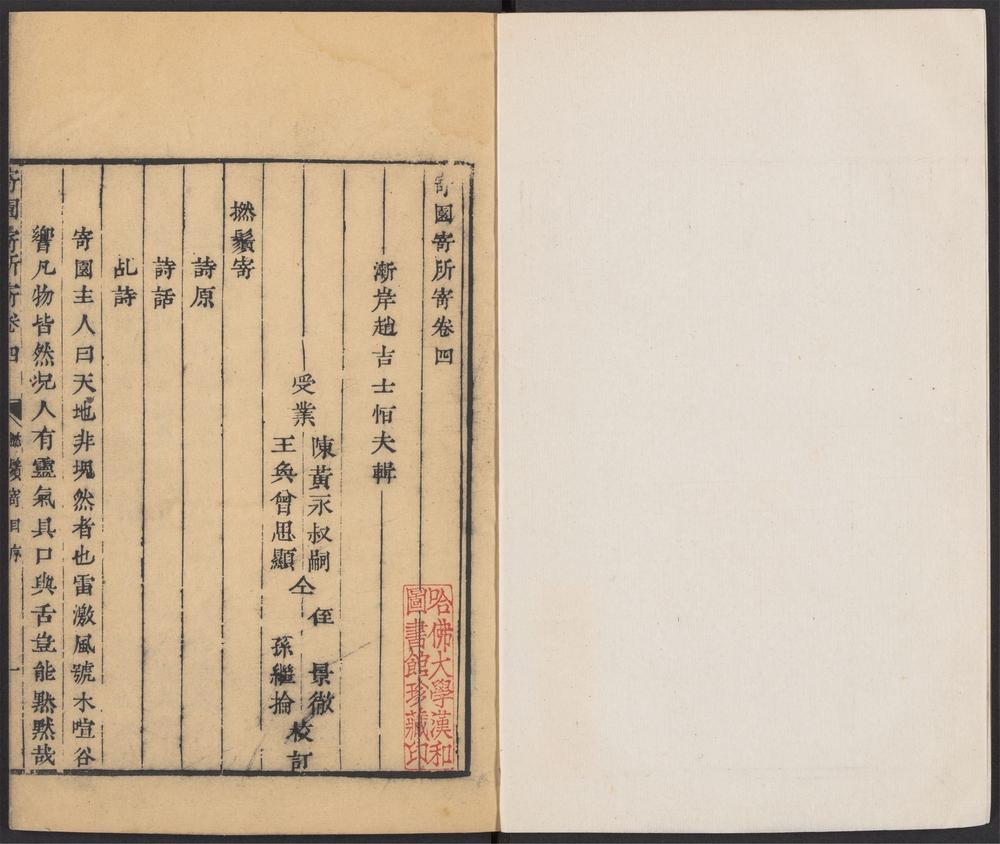 寄園寄所寄卷四
漸岸趙吉士恒夫輯
受業
陳黃永叔嗣
王奐曾思顯
仝
侄 景徹
孫繼掄
校訂
撚鬚寄
詩原
詩話
乩詩
寄園主人曰天地非塊然者也雷激風號水喧谷
響凡物皆然况人有靈氣具口與舌豈能默默哉
寄園寄所寄卷四
撚鬚寄目序
一
哈佛大學漢和
圖書館珍藏印